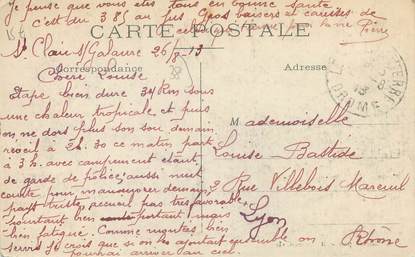 Je pense que vous êtes tous en bonne santé
c'est du 38° au pas Gros baisers et caresses de
celui qui
Pierre
CARTE POSTALE
St Clair St Galaure 26/8-13
Correspondance
Adresse
Chère Louise
Etape bien dure 34 Km sous
une chaleur tropicale et puis
on ne dors plus son sou demain
reveil à 2h.30 ce matin part
à 3h. avec campement étant
de garde de police, aussi nuit
courte pour manoeuvrer demain
pays triste, accueil pas très favorable
pourtant bien portant, mais
bien fatigué. Comme montées bien
servis je crois que si on les ajoutait ensemble on
pourrait arriver au ciel.
Mademoiselle
Louise Bastide
2 Rue Villebois Mareuil
Lyon
Rhône
DROME